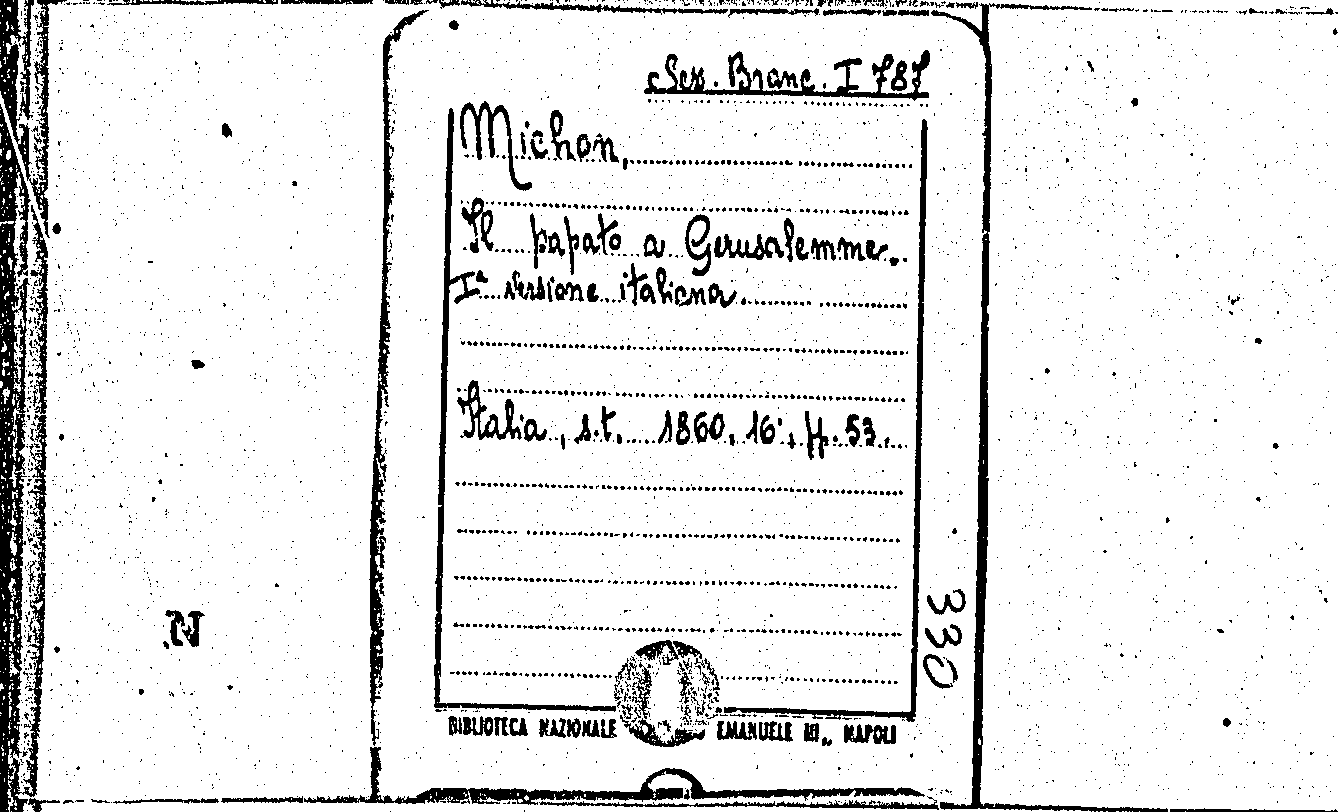 Sez. Branc. I 787
Michon,
Il papato a Gerusalemme.
Iª versione italiana.
Italia, s.t. 1860, 16°, pp. 53.
330
N.
BIBLIOTECA NAZIONALE EMANUELE III„ NAPOLI